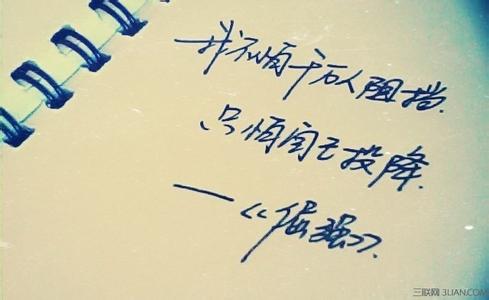 我不怕千万人阻挡.
只怕自己投降.
—《倔强》.
三联网 3LIAN.COM